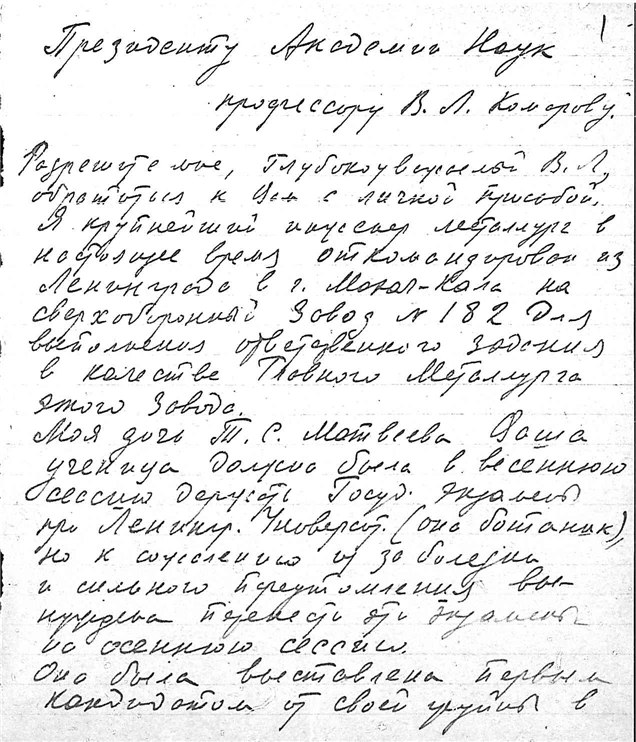 1
Президенту Академии Наук
профессору В. Л. Комарову.
Разрешите мне, глубокоуважаемый В. Л,
обратиться к Вам с личной просьбой.
Я крупнейший инженер металлург в
настоящее время откомандирован из
Ленинграда в г. Махач-Кала на
сверхоборонный Завод № 182 для
выполнения ответственного задания
в качестве Главного Металлурга
этого Завода.
Моя дочь Т. С. Матвеева Ваша
ученица должна была в весеннюю
сессию держать Госуд. экзамены
при Ленингр. Университ. (она ботаник),
но к сожалению из за болезни
и сильного переутомления вы-
нуждена перенести эти экзамены
на осеннюю сессию.
Она была выставлена первым
кандидатом от своей группы в